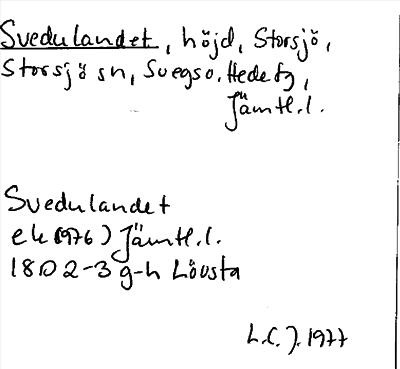 Svedulandet, höjd, Storsjö,
Storsjö sn, Svegs o. Hede tg,
Jämtl. l.
Svedulandet
ek (1976) Jämtl. l.
18D 2-3 g-h Lövsta
L.C.J. 1977